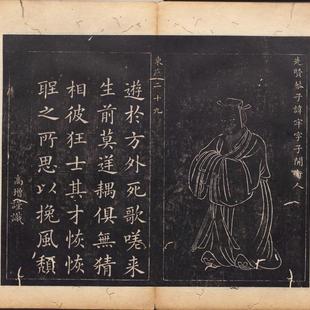 先賢琴子諱牢字子開衛人
東廡二十九
遊於方外死歌嗟来
生前莫逆耦俱無猜
相彼狂士其才恢恢
聖之所思以挽風頹
高增謹識